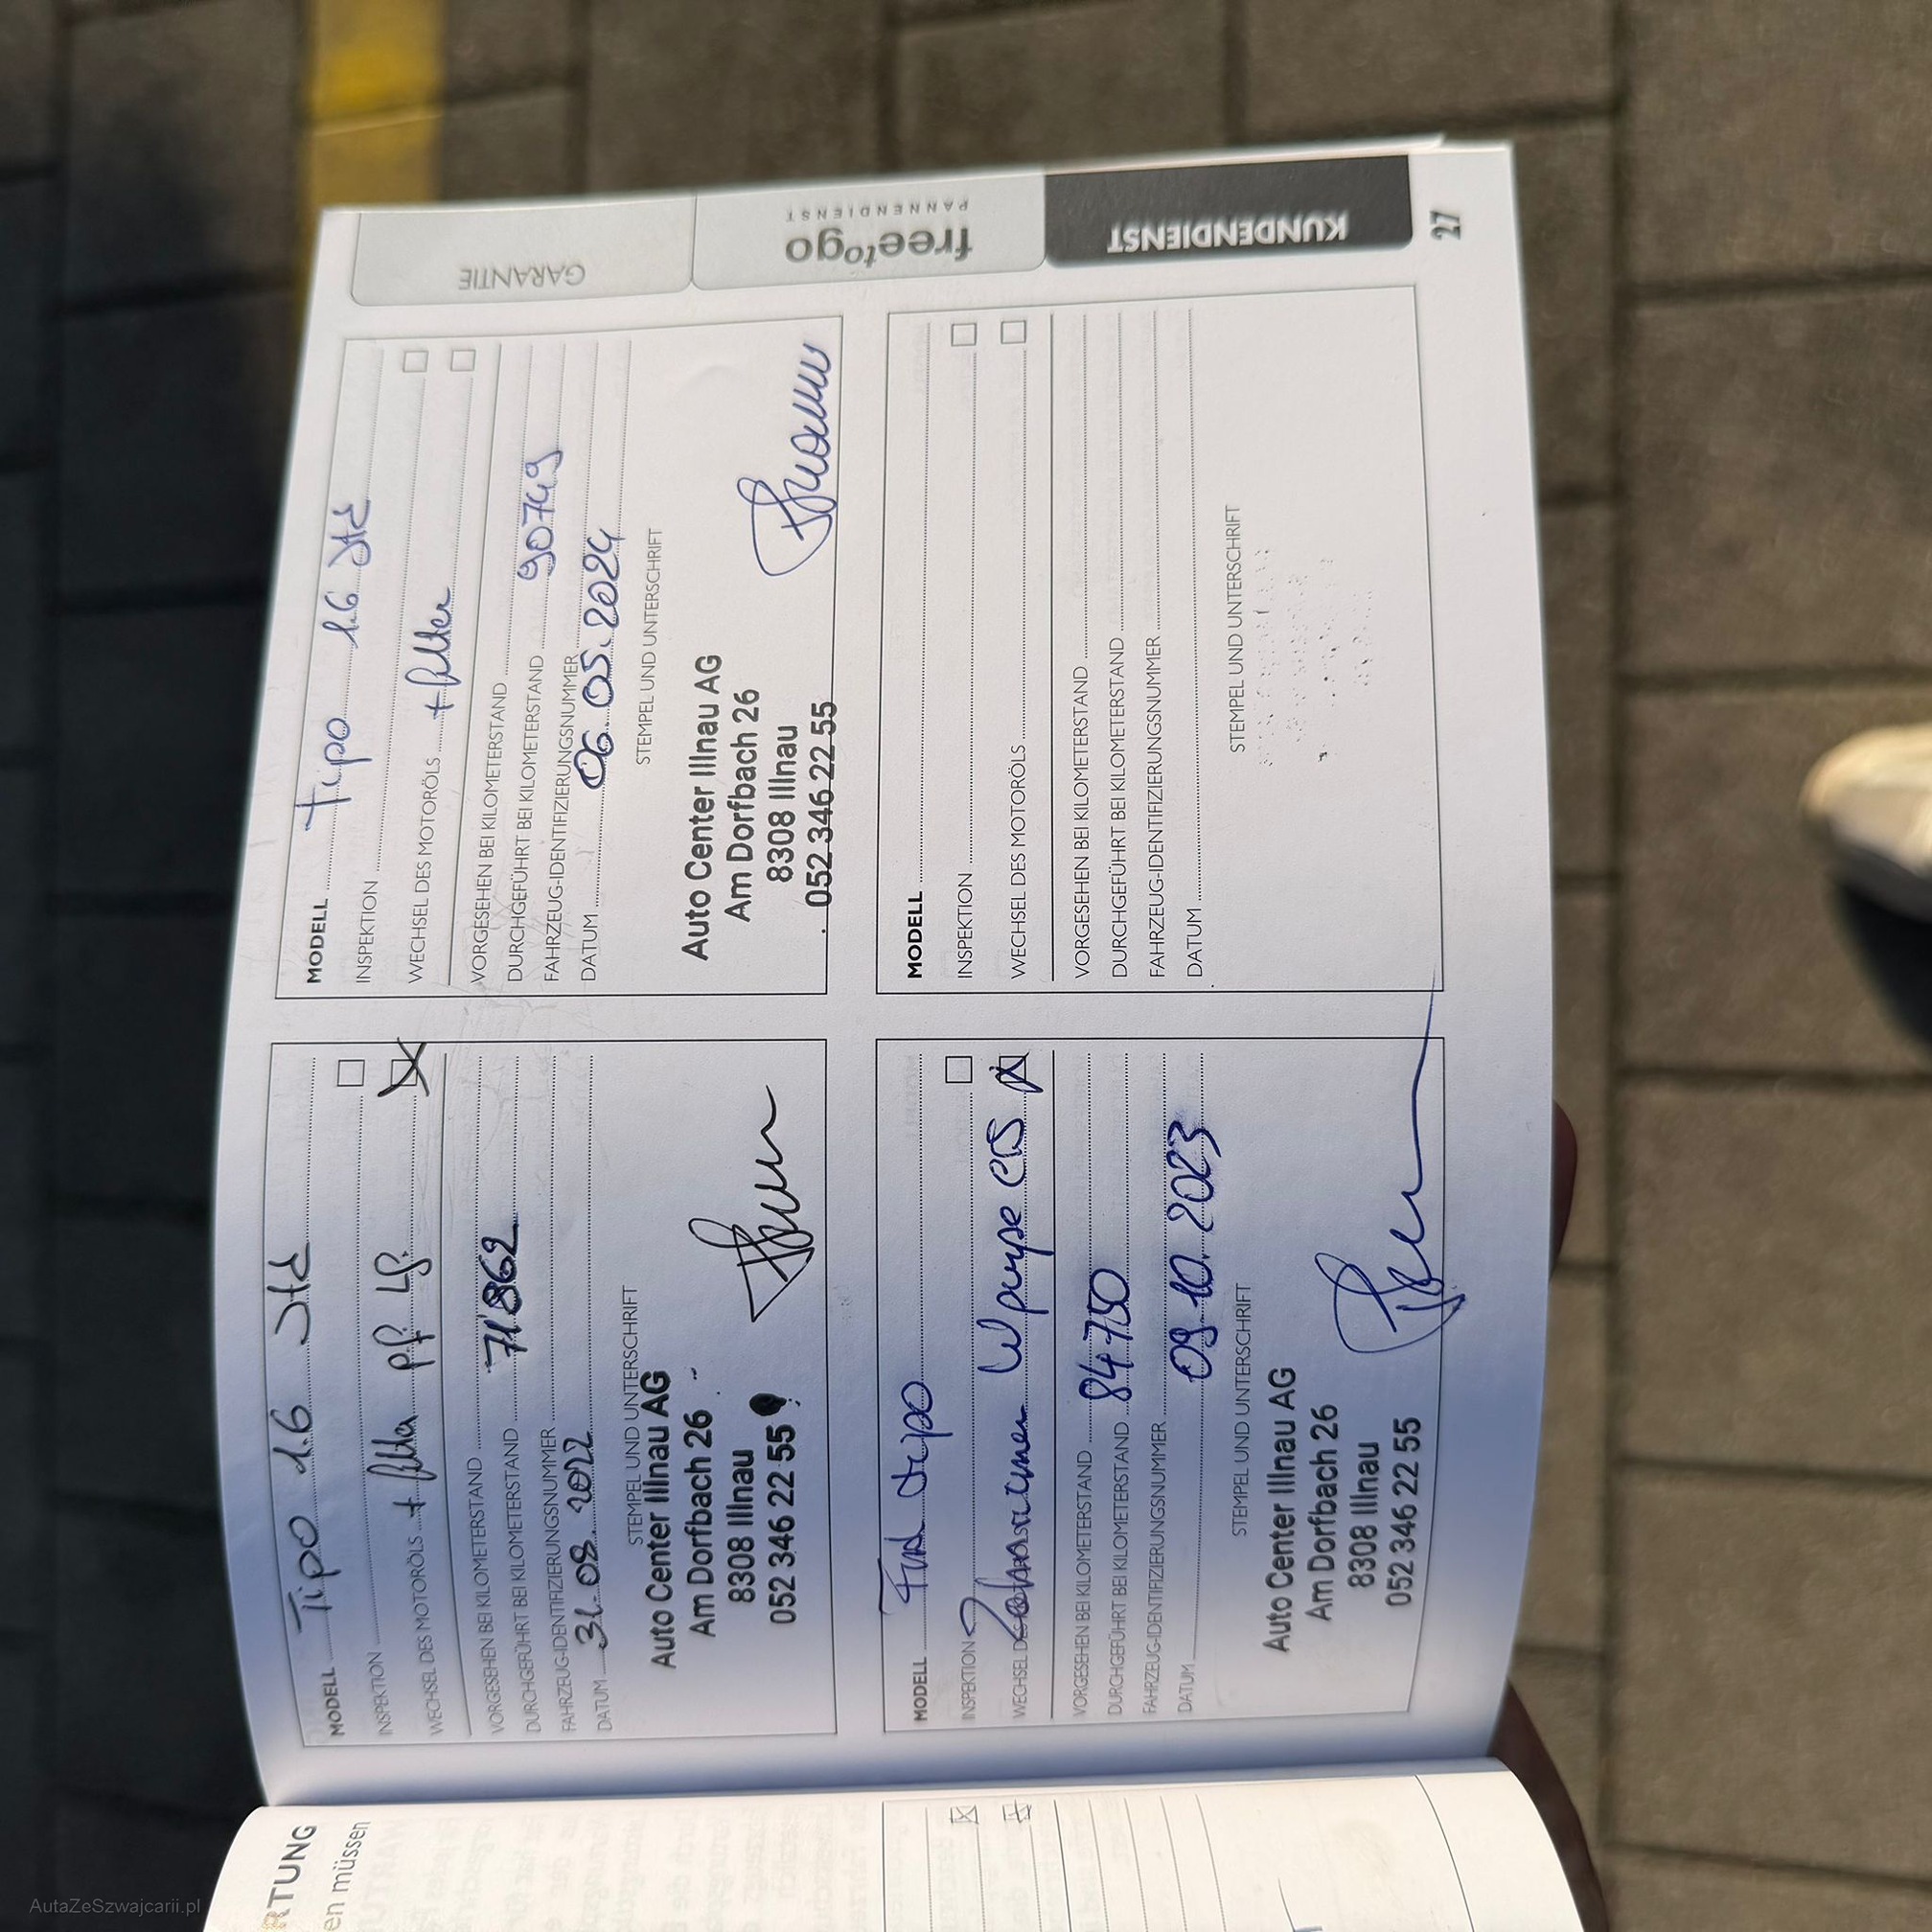 GARANTIE
freetogo
PANNENDIENST
KUNDENDIENST
27
MODELL Tipo 1.6 Jtd
INSPEKTION
WECHSEL DES MOTORÖLS + filter PF. LF.
VORGESEHEN BEI KILOMETERSTAND
DURCHGEFÜHRT BEI KILOMETERSTAND 71'862
FAHRZEUG-IDENTIFIZIERUNGSNUMMER
DATUM 31.08.2022
STEMPEL UND UNTERSCHRIFT
Auto Center Illnau AG
Am Dorfbach 26
8308 Illnau
052 346 22 55
MODELL Tipo 1.6 Jtd
INSPEKTION
WECHSEL DES MOTORÖLS + filter
VORGESEHEN BEI KILOMETERSTAND
DURCHGEFÜHRT BEI KILOMETERSTAND 90749
FAHRZEUG-IDENTIFIZIERUNGSNUMMER
DATUM 06.05.2024
STEMPEL UND UNTERSCHRIFT
Auto Center Illnau AG
Am Dorfbach 26
8308 Illnau
052 346 22 55
MODELL Fiat Tipo
INSPEKTION
WECHSEL DES Zahnriemen W pumpe
VORGESEHEN BEI KILOMETERSTAND
DURCHGEFÜHRT BEI KILOMETERSTAND 84750
FAHRZEUG-IDENTIFIZIERUNGSNUMMER
DATUM 09.10.2023
STEMPEL UND UNTERSCHRIFT
Auto Center Illnau AG
Am Dorfbach 26
8308 Illnau
052 346 22 55
MODELL
INSPEKTION
WECHSEL DES MOTORÖLS
VORGESEHEN BEI KILOMETERSTAND
DURCHGEFÜHRT BEI KILOMETERSTAND
FAHRZEUG-IDENTIFIZIERUNGSNUMMER
DATUM
STEMPEL UND UNTERSCHRIFT
RTUNG
en müssen
AutaZeSzwajcarii.pl